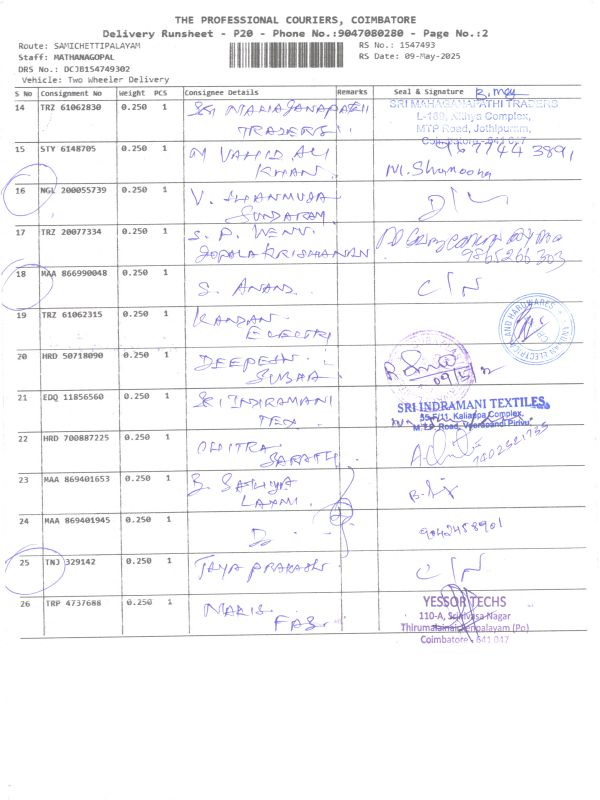 THE PROFESSIONAL COURIERS, COIMBATORE
Delivery Runsheet - P20 - Phone No.:9047080280 - Page No.:2
Route: SAMICHETTIPALAYAM RS No.: 1547493
Staff: MATHANAGOPAL RS Date: 09-May-2025
DRS No.: DCJB154749302
Vehicle: Two Wheeler Delivery
S No Consignment No Weight PCS Consignee Details Remarks Seal & Signature
14 TRZ 61062830 0.250 1 SRI MAHAGANAPATHI SRI MAHAGANAPATHI TRADERS
TRADERS L-180, Nithya Complex,
MTP Road, Jothipuram,
Coimbatore - 641 047
15 STY 6148705 0.250 1 M VAHID ALI
KHAN
16 NGL 200055739 0.250 1 V. SHANMUGA
SUNDARAM
17 TRZ 20077334 0.250 1 S. P. VENU
GOPALA KRISHANAN 9865266303
18 MAA 866990048 0.250 1 S. ANAND C/N
19 TRZ 61062315 0.250 1 KANDAN
ELECTRI
20 HRD 50718090 0.250 1 DEEPESH
SUBHA
21 EDQ 11856560 0.250 1 SRI INDRAMANI SRI INDRAMANI TEXTILES
TEX 35-F/11, Kaliappa Complex,
M.T.P. Road, Veerapandi Pirivu
22 HRD 700887225 0.250 1 CHITRA
SARATH
23 MAA 869401653 0.250 1 B. SATHYA
LAXMI
24 MAA 869401945 0.250 1 D 9042458901
25 TNJ 329142 0.250 1 JAYA PRAKASH C/N
26 TRP 4737688 0.250 1 MARIS YESSOR TECHS
FAB 110-A, Srinivasa Nagar
Thirumalainaickenpalayam (Po)
Coimbatore - 641 047